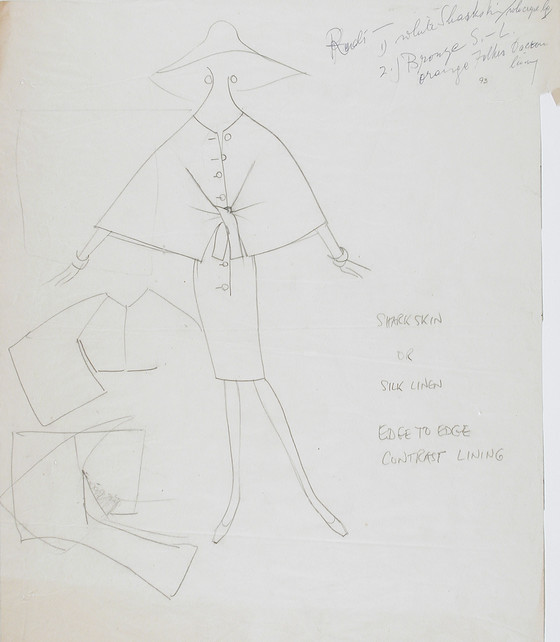 Rudi —
1) white Sharkskin
2.) Bronze S.-L.
orange
SHARKSKIN
OR
SILK LINEN
EDGE TO EDGE
CONTRAST LINING